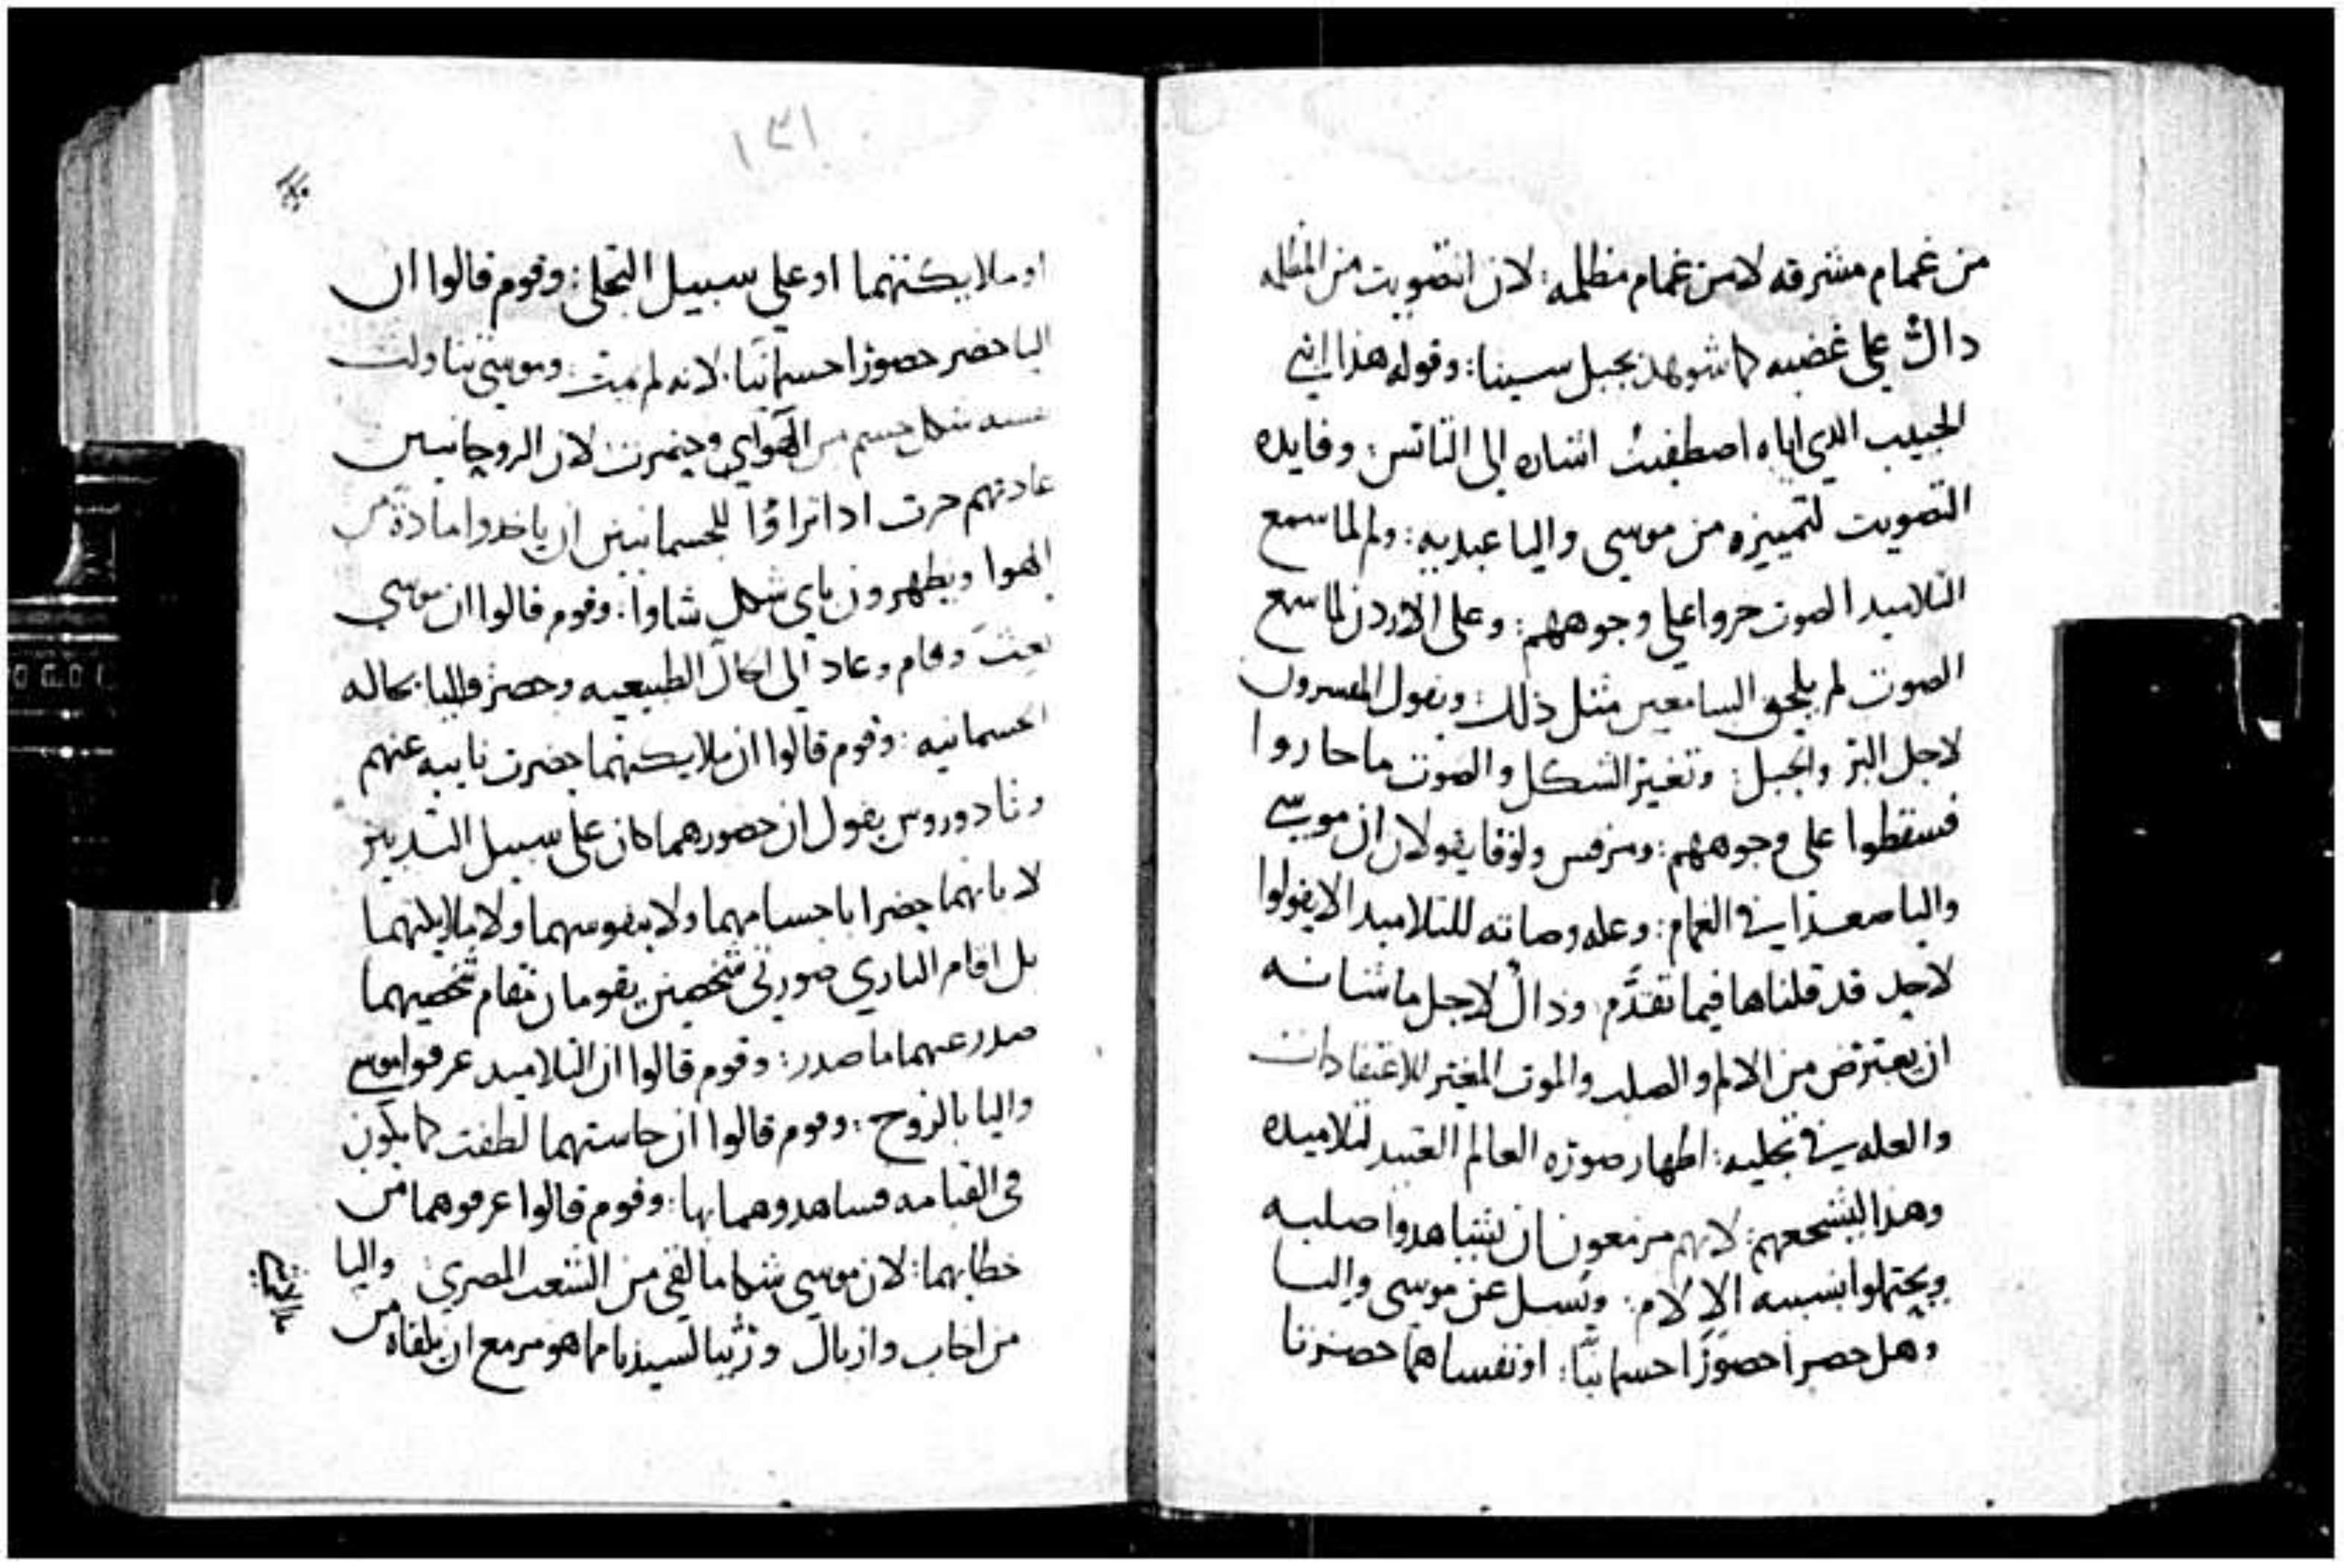 من غمام مشرقه لا من غمام مظلمه: لان التصويت من المظلمه
دال على غضبه كما شوهد بجبل سينا: وقوله هذا ابني
الحبيب الدي اياه اصطفيت اشاره الى الناس: وفايده
التصويت لتمييزه من موسى واليا عبديه: ولم لما سمع
التلاميد الصوت خروا على وجوههم: وعلى الاردن لما سمع
الصوت لم يلحق السامعين مثل ذلك: ويقول المفسرون
لاجل البر والجبل: وتغير الشكل والصوت ما حاروا
فسقطوا على وجوههم: ومرقس ولوقا يقولان ان موسى
واليا صعدا في الغمام: وعله وصاته للتلاميد الا يقولوا
لاحد قد قلناها فيما تقدم: وذاك لاجل ما شانه
ان يعترض من الالم والصلب والموت المغير للاعتقادات
والعله في تجليه: اظهار صوره العالم العتيد لتلاميده
وهدا ليشجعهم: لانهم مزمعون ان يشاهدوا صلبه
ويحتملوا بسببه الالام: ويسل عن موسى واليا
وهل حضرا حضورا جسمانيا: او نفساهما حضرتا
١٣١
او ملايكتهما او على سبيل التجلى: وقوم قالوا ان
اليا حضر حضورا جسمانيا: لانه لم يمت: وموسى تناولت
نفسه شكل جسم من الهواي وحضرت لان الروحانيين
عادتهم جرت ادا تراوا للجسمانيين ان ياخدوا مادة من
الهوا ويظهرون باي شكل شاوا: وقوم قالوا ان موسى
بعث وقام وعاد الى الحال الطبيعيه وحضر واليا بحاله
الجسمانيه: وقوم قالوا ان ملايكتهما حضرت نايبه عنهم
وثادوروس يقول ان حضورهما كان على سبيل التدبير
لا بانهما حضرا باجسامهما ولا بنفوسهما ولا بملايكتهما
بل اقام الباري صورتي شخصين يقومان مقام شخصيهما
صدر عنهما ما صدر: وقوم قالوا ان التلاميد عرفوا موسى
واليا بالروح: وقوم قالوا ان حاستهما لطفت كما يكون
في القيامه فساهدوهما بها: وقوم قالوا عرفوهما من
خطابهما: لان موسى شكا ما لقي من الشعب المصري واليا
من اخاب وازبال ورثيا لسيدنا مما هو مزمع ان يلقاه من